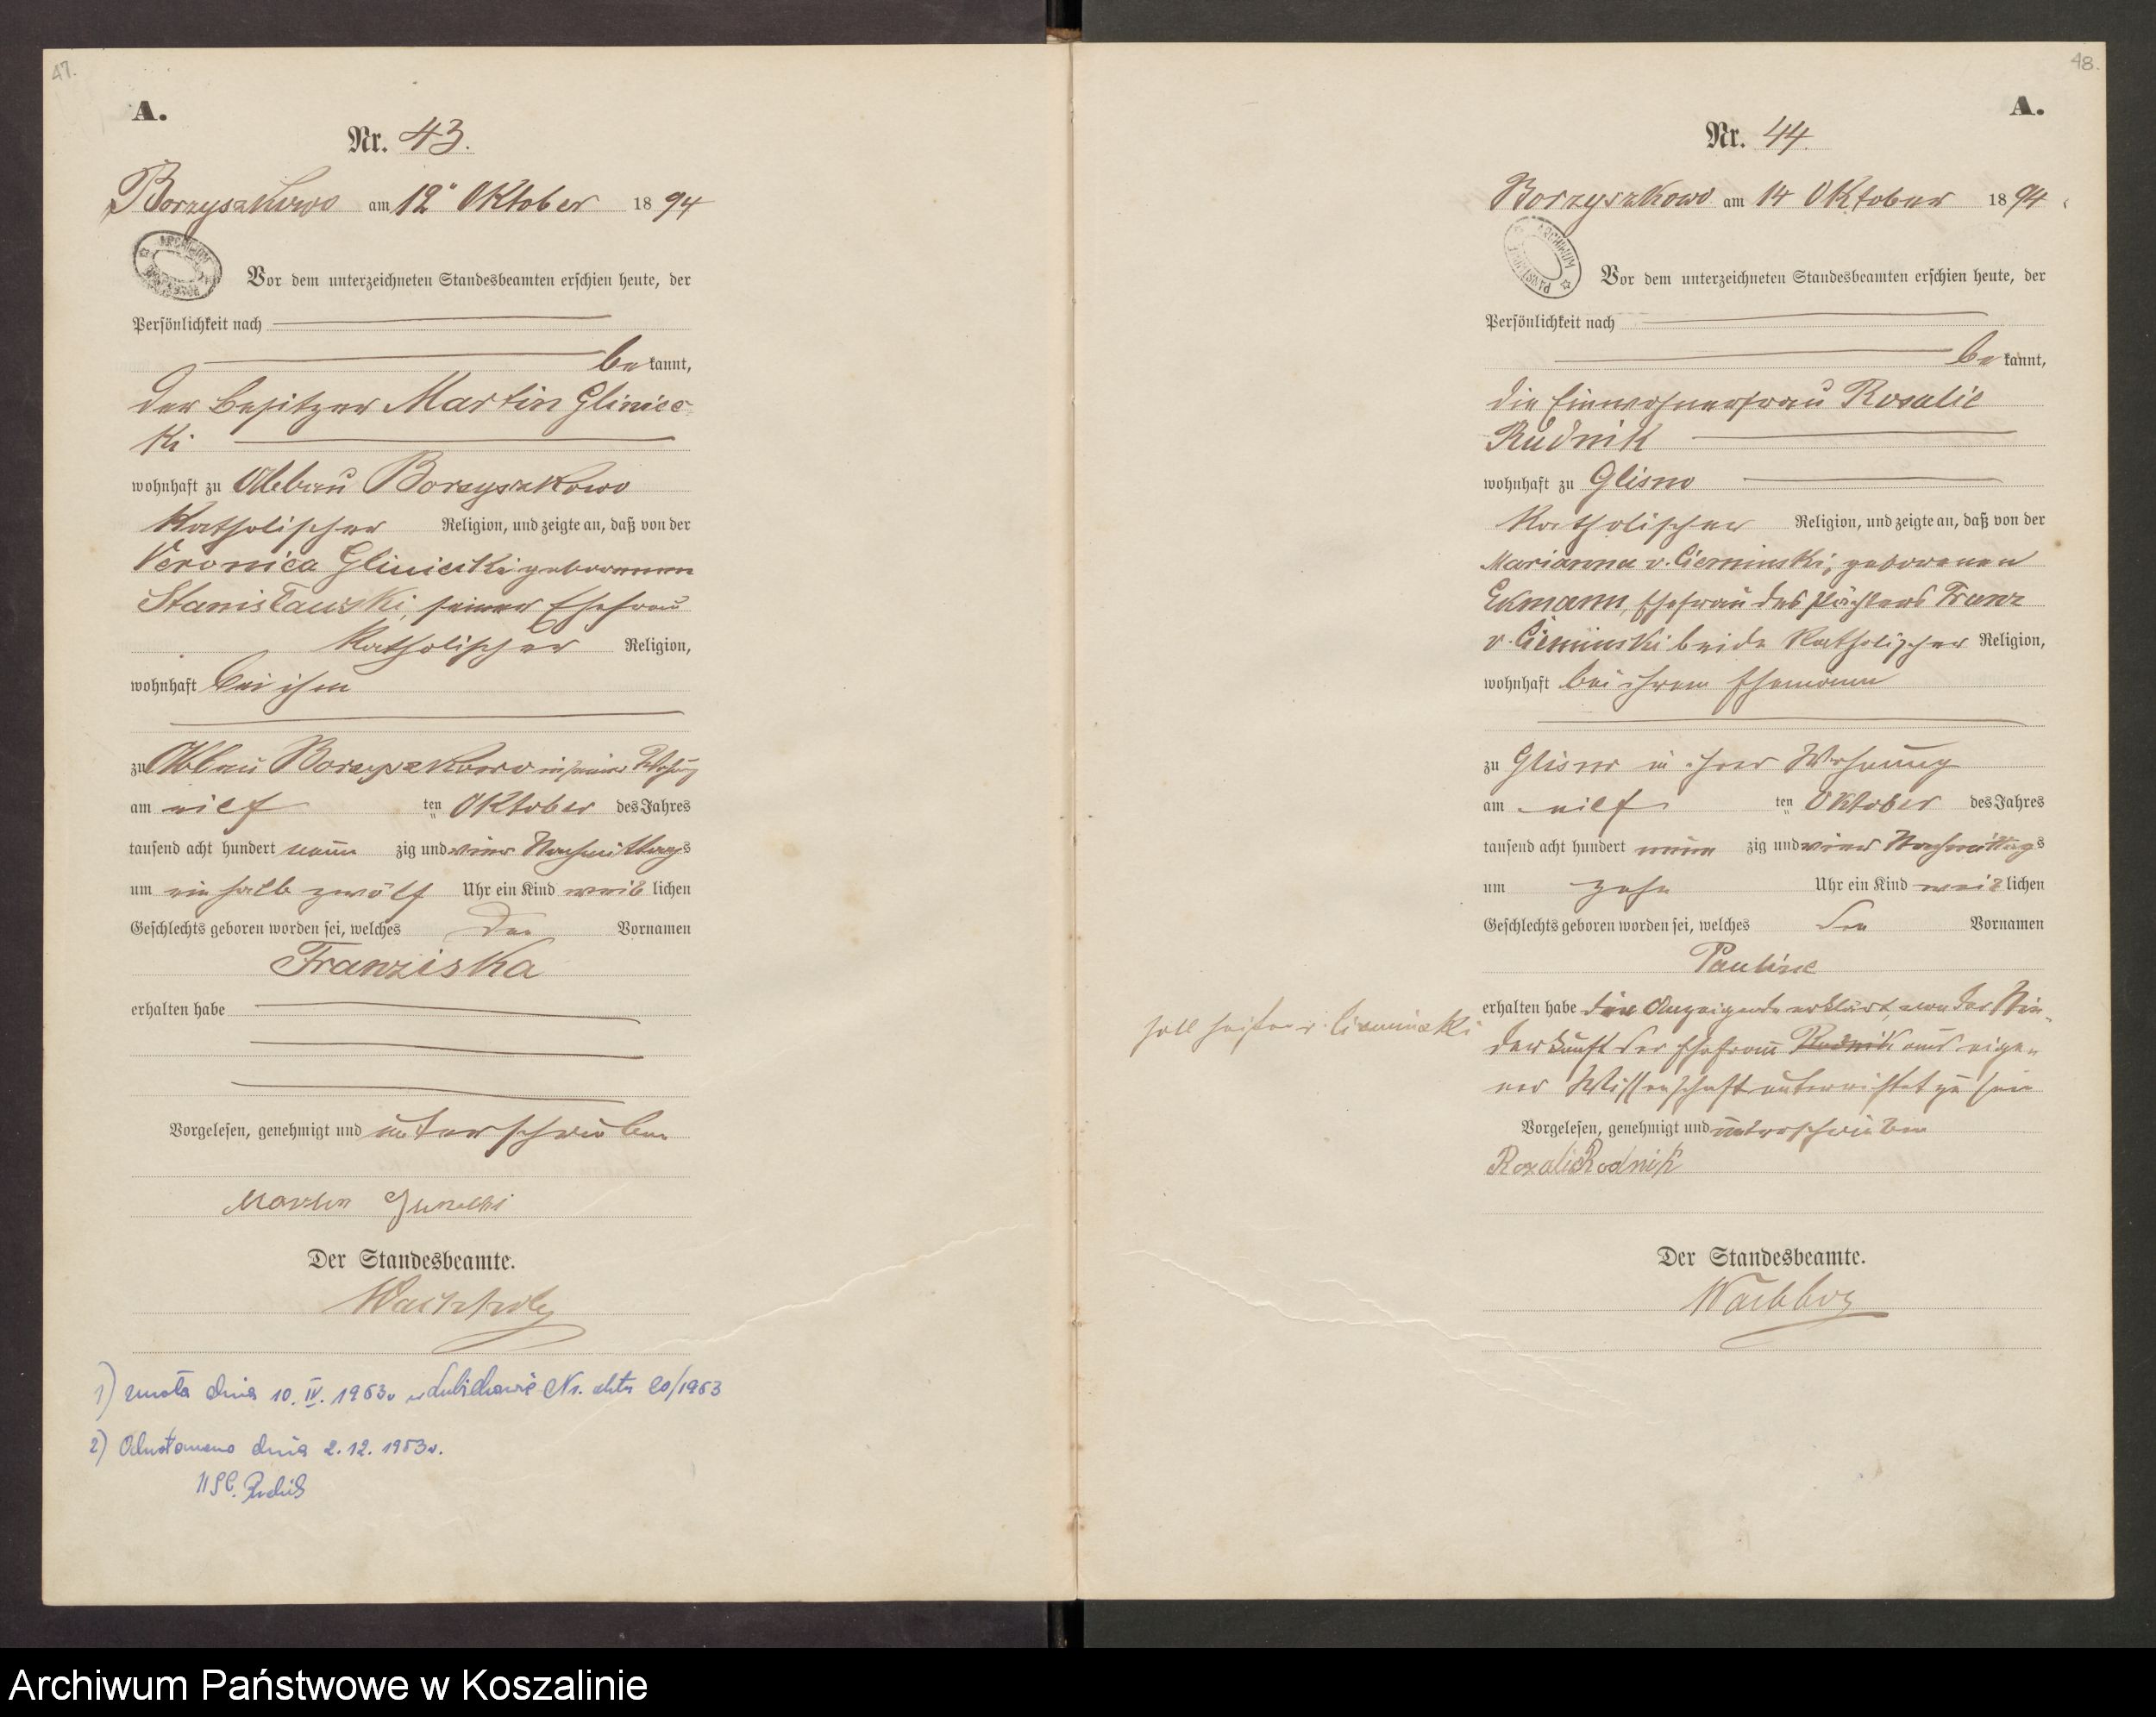 47.
A.
Nr. 43.
Borzyszkowo am 12 Oktober 1894
Vor dem unterzeichneten Standesbeamten erschien heute, der
Persönlichkeit nach
bekannt,
der Besitzer Martin Gliniec
ki
wohnhaft zu Abbau Borzyszkowo
katholischer Religion, und zeigte an, daß von der
Veronica Gliniecki geborenen
Stanisławski, seiner Ehefrau
katholischer Religion,
wohnhaft bei ihm
zu Abbau Borzyszkowo in seiner Wohnung
am eilf ten Oktober des Jahres
tausend acht hundert neun zig und vier Nachmittags
um ein halb zwölf Uhr ein Kind weiblichen
Geschlechts geboren worden sei, welches den Vornamen
Franziska
erhalten habe
Vorgelesen, genehmigt und unterschrieben
Martin
Der Standesbeamte.
1) zmarła dnia 10. IV. 1963 w Lubichowie Nr. aktu 20/1963
2) dnia 2.12.1953r.
USC.
48.
A.
Nr. 44.
Borzyszkowo am 14 Oktober 1894
Vor dem unterzeichneten Standesbeamten erschien heute, der
Persönlichkeit nach
bekannt,
die Einwohnerfrau Rosalie
Rudnik
wohnhaft zu Glisno
katholischer Religion, und zeigte an, daß von der
Marianna v. Cieminski, geborenen
Ekmann, Ehefrau des Pächters Franz
v. Cieminski beide katholischer Religion,
wohnhaft bei ihrem Ehemann
zu Glisno in ihrer Wohnung
am eilf ten Oktober des Jahres
tausend acht hundert neun zig und vier Nachmittags
um zehn Uhr ein Kind weiblichen
Geschlechts geboren worden sei, welches den Vornamen
Pauline
erhalten habe Die Anzeigende erklärt, von der Nie-
soll heißen v. Cieminski
derkunft der Ehefrau Rudnik aus eige-
ner Wissenschaft unterrichtet zu sein
Vorgelesen, genehmigt und unterschrieben
Rozalie Rodnik
Der Standesbeamte.
Archiwum Państwowe w Koszalinie